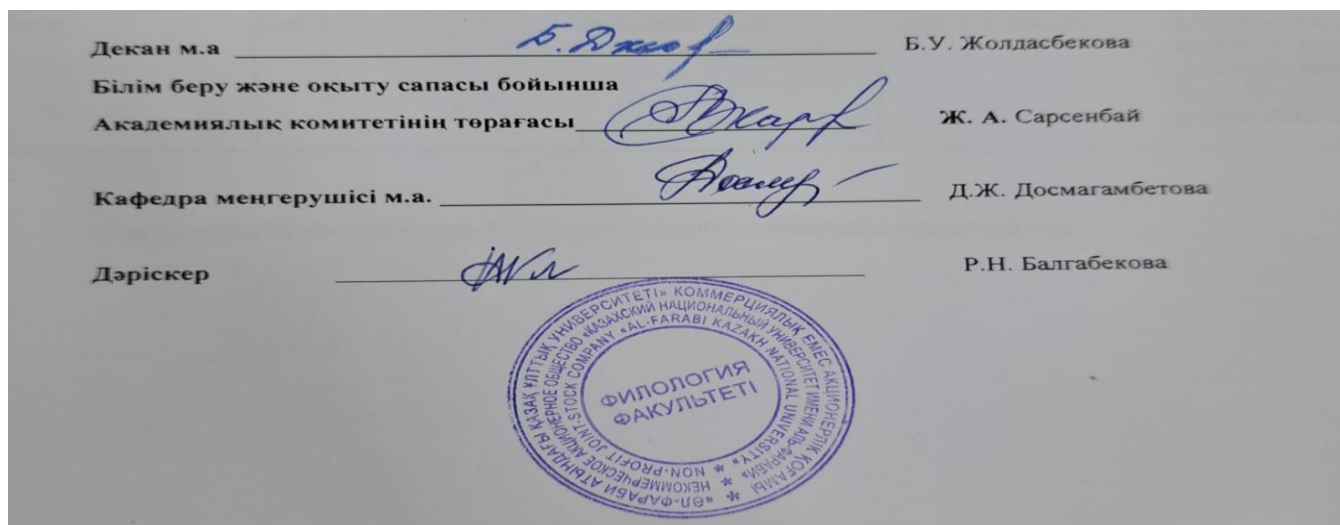 Декан м.а Б.У. Жолдасбекова
Білім беру және оқыту сапасы бойынша
Академиялық комитетінің төрағасы Ж. А. Сарсенбай
Кафедра меңгерушісі м.а. Д.Ж. Досмагамбетова
Дәріскер Р.Н. Балгабекова
«ӘЛ-ФАРАБИ АТЫНДАҒЫ ҚАЗАҚ ҰЛТТЫҚ УНИВЕРСИТЕТІ» КОММЕРЦИЯЛЫҚ ЕМЕС АКЦИОНЕРЛІК ҚОҒАМЫ
НЕКОММЕРЧЕСКОЕ АКЦИОНЕРНОЕ ОБЩЕСТВО «КАЗАХСКИЙ НАЦИОНАЛЬНЫЙ УНИВЕРСИТЕТ ИМЕНИ АЛЬ-ФАРАБИ»
NON-PROFIT JOINT-STOCK COMPANY «AL-FARABI KAZAKH NATIONAL UNIVERSITY»
ФИЛОЛОГИЯ
ФАКУЛЬТЕТІ